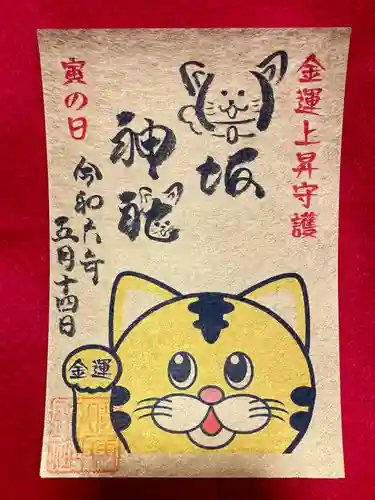 金運上昇守護
坂
神社
寅の日
令和六年
五月十四日
金運